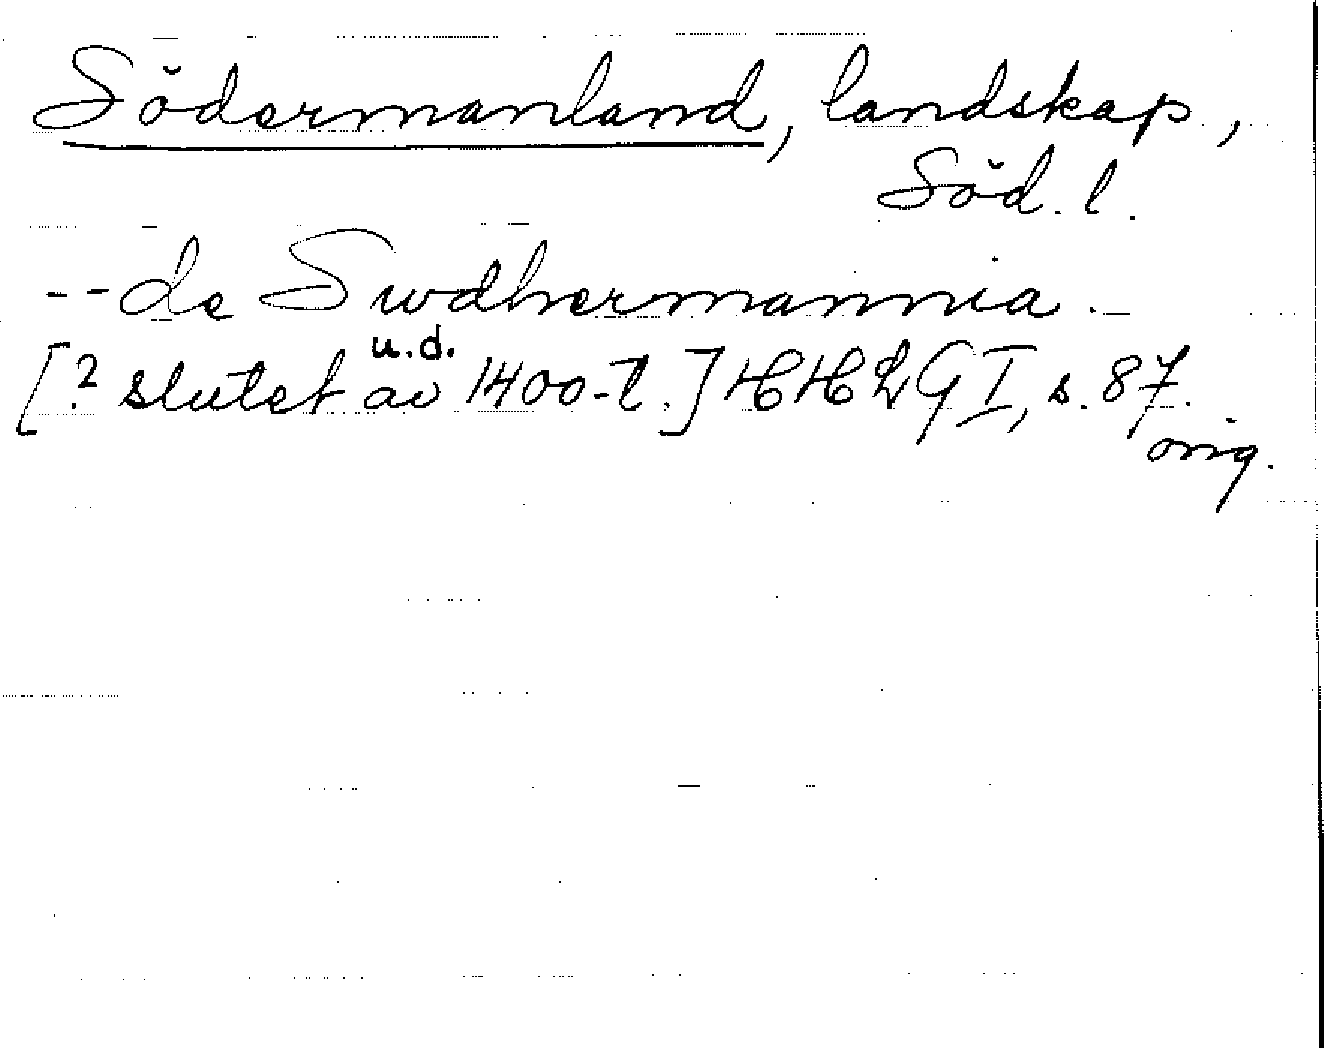 Södermanland, landskap,
Söd. l.
-- de Swdhermannia.
u.d.
[? slutet av 1400-t.] HHLG I, s. 87.
orig.